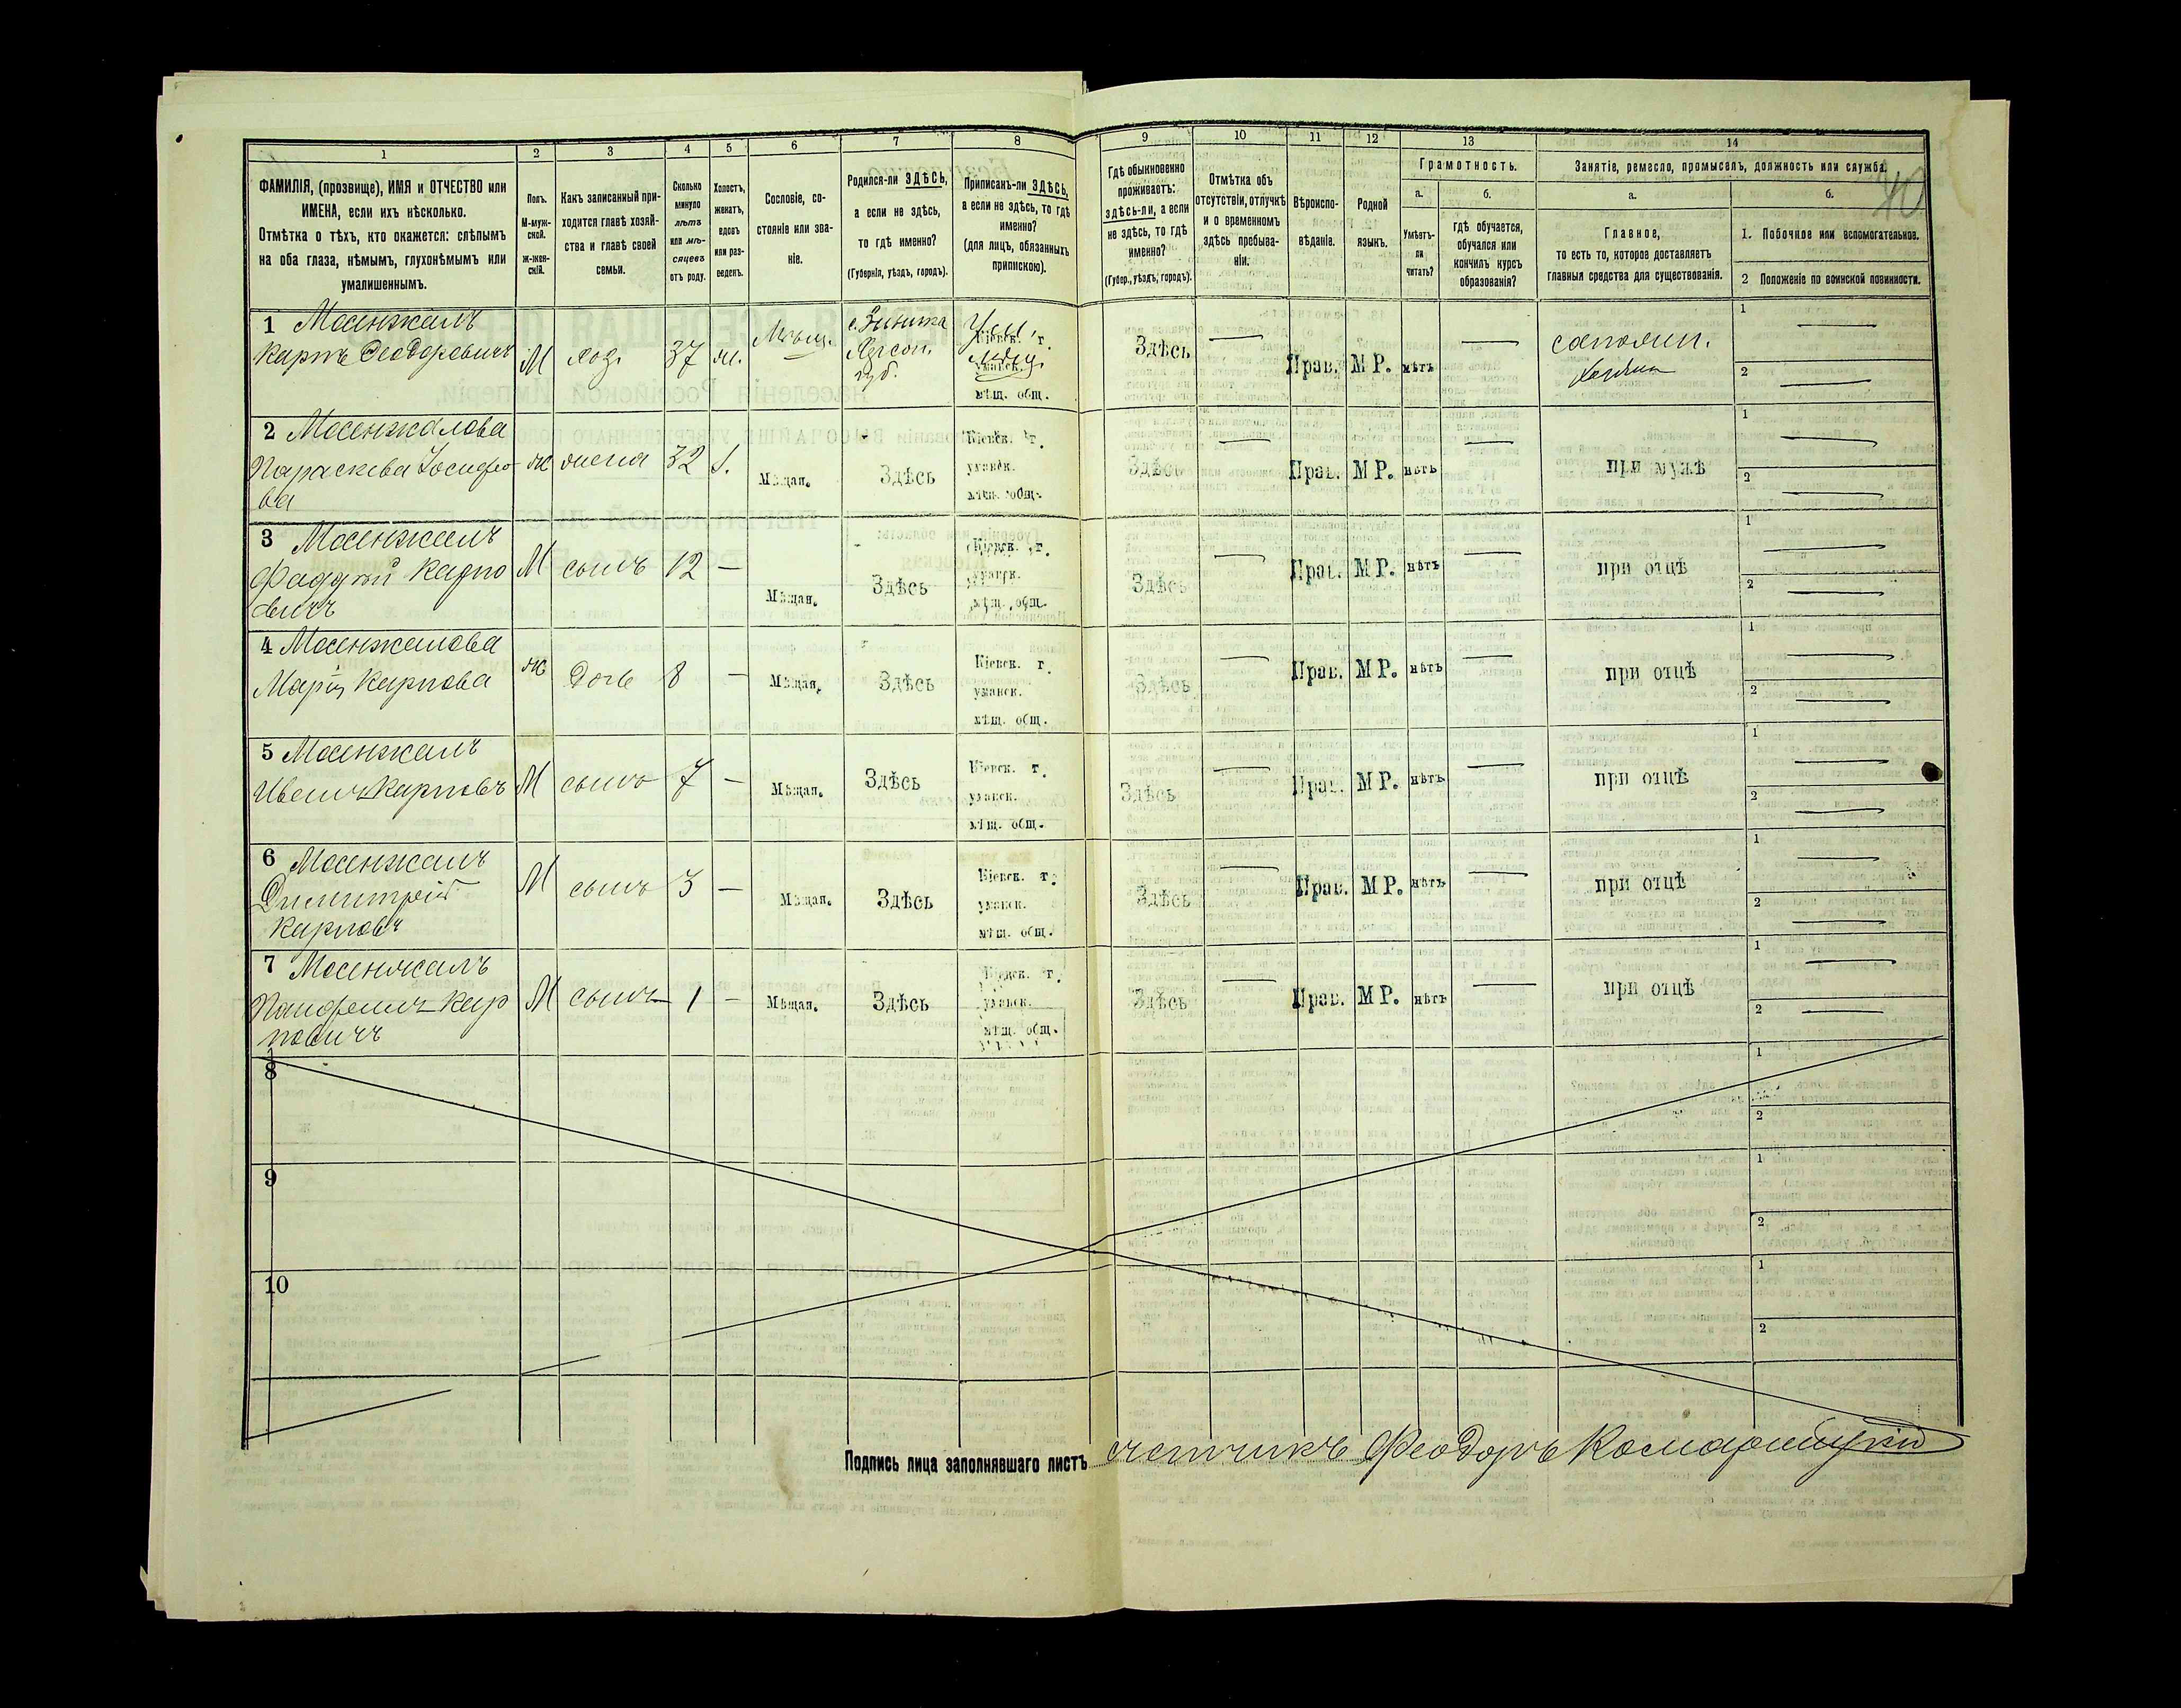 1 2 3 4 5 6 7 8 9 10 11 12 13 14
ФАМИЛІЯ, (прозвище), ИМЯ и ОТЧЕСТВО или
ИМЕНА, если ихъ нѣсколько.
Отмѣтка о тѣхъ, кто окажется: слѣпымъ
на оба глаза, нѣмымъ, глухонѣмымъ или
умалишеннымъ.
Полъ.
М-муж-
ской.
Ж-жен-
скій.
Какъ записанный при-
ходится главѣ хозяй-
ства и главѣ своей
семьи.
Сколько
минуло
лѣтъ
или мѣ-
сяцевъ
отъ роду.
Холостъ,
женатъ,
вдовъ
или раз-
веденъ.
Сословіе, со-
стояніе или зва-
ніе.
Родился-ли ЗДѢСЬ,
а если не здѣсь,
то гдѣ именно?
(Губернія, уѣздъ, городъ).
Приписанъ-ли ЗДѢСЬ,
а если не здѣсь, то гдѣ
именно?
(для лицъ, обязанныхъ
припискою).
Гдѣ обыкновенно
проживаетъ:
здѣсь-ли, а если
не здѣсь, то гдѣ
именно?
(Губер., уѣздъ, городъ).
Отмѣтка объ
отсутствіи, отлучкѣ
и о временномъ
здѣсь пребыва-
ніи.
Вѣроиспо-
вѣданіе.
Родной
языкъ.
Грамотность.
а.
Умѣетъ-
ли
читать?
б.
гдѣ обучается,
обучался или
кончилъ курсъ
образованія?
Занятіе, ремесло, промыселъ, должность или служба.
а.
Главное,
то есть то, которое доставляетъ
главныя средства для существованія.
б.
1. Побочное или вспомогательное.
2 Положеніе по воинской повинности.
40
1 Мосенжалъ
Карпъ Феодоровичъ М хоз. 37 ж. Мѣщ.
Херсон.
губ.
Кіевск. г.
уманск.
мѣщ. общ.
Здѣсь — Прав. М Р. нѣтъ — сапожн.
хозяин
1 —
2 —
2 Мосенжалова
Параскева Іосифо-
ва
ж жена 32 Мѣщан. Здѣсь
Кіевск. г.
уманск.
мѣщ. общ.
Здѣсь — Прав. М Р. нѣтъ — при мужѣ
1 —
2 —
3 Мосенжалъ
Фаддей Карпо
вичъ
М сынъ 12 — Мѣщан. Здѣсь
Кіевск. г.
уманск.
мѣщ. общ.
Здѣсь — Прав. М Р. нѣтъ — при отцѣ
1 —
2 —
4 Мосенжалова
Марія Карпова
ж дочь 8 — Мѣщан. Здѣсь
Кіевск. г.
уманск.
мѣщ. общ.
Здѣсь — Прав. М Р. нѣтъ — при отцѣ
1 —
2 —
5 Мосенжалъ
Иванъ Карповъ
М сынъ 7 — Мѣщан. Здѣсь
Кіевск. г.
уманск.
мѣщ. общ.
Здѣсь — Прав. М Р. нѣтъ — при отцѣ
1 —
2 —
6 Мосенжалъ
Димитрій
Карповъ
М сынъ 3 — Мѣщан. Здѣсь
Кіевск. г.
уманск.
мѣщ. общ.
Здѣсь — Прав. М Р. нѣтъ — при отцѣ
1 —
2 —
7 Мосенжалъ
Панфилъ Кар
повичъ
М сынъ 1 — Мѣщан. Здѣсь
Кіевск. г.
уманск.
мѣщ. общ.
Здѣсь — Прав. М Р. нѣтъ — при отцѣ
1 —
2 —
8
1
2
9
1
2
10
1
2
Подпись лица заполнявшаго листъ счетчикъ Феодоръ Комарницкій